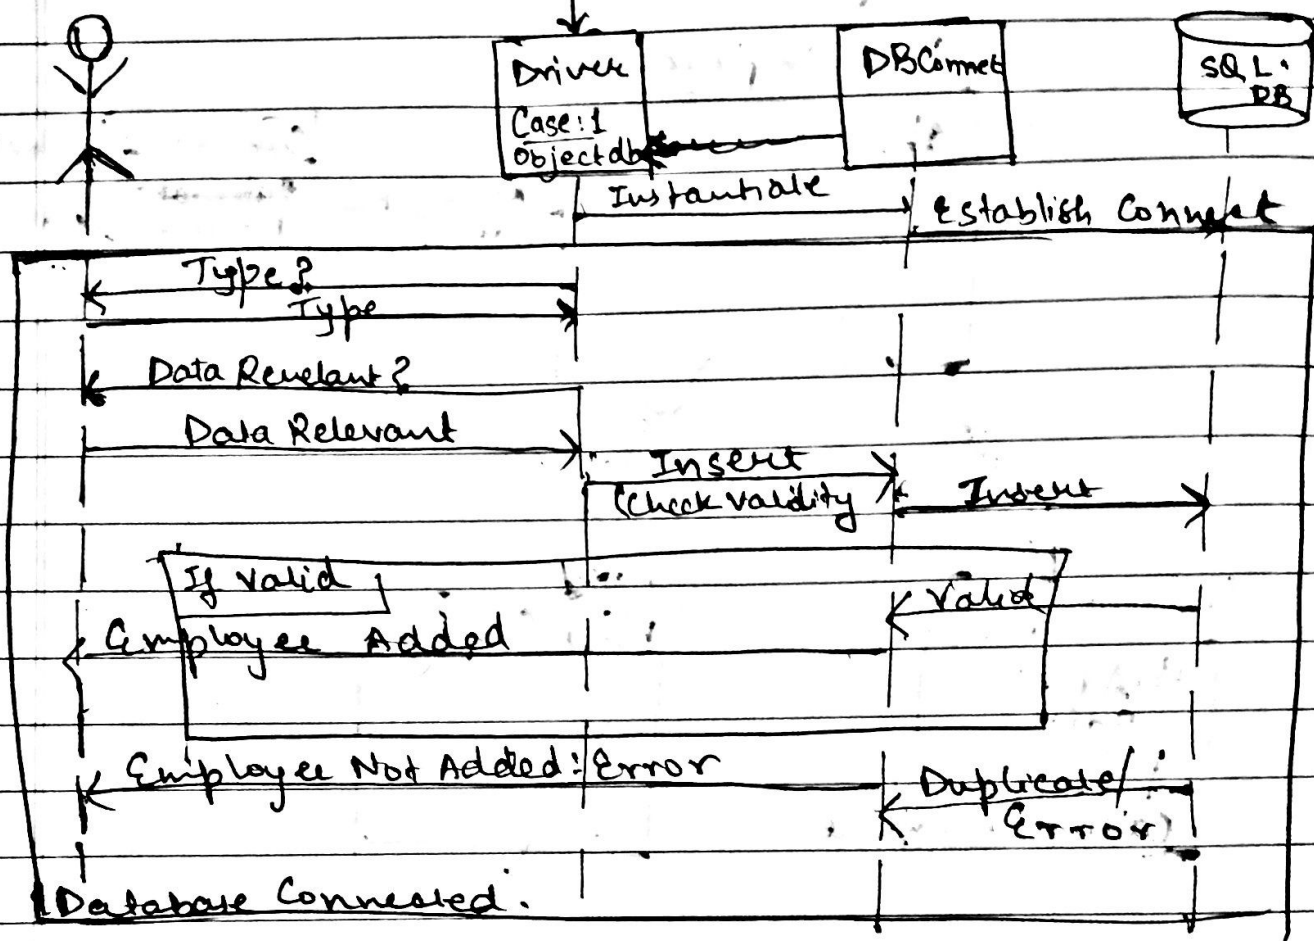 Driver
Case:1
Objectdb
DBConnet
SQL.
DB
Instantiate
Establish Connect
Type?
Type
Data Revelant?
Data Relevant
Insert
(Check validity
Insert
If valid
Valid
Employee Added
Employee Not Added: Error
Duplicate/
Error
Database Connected.